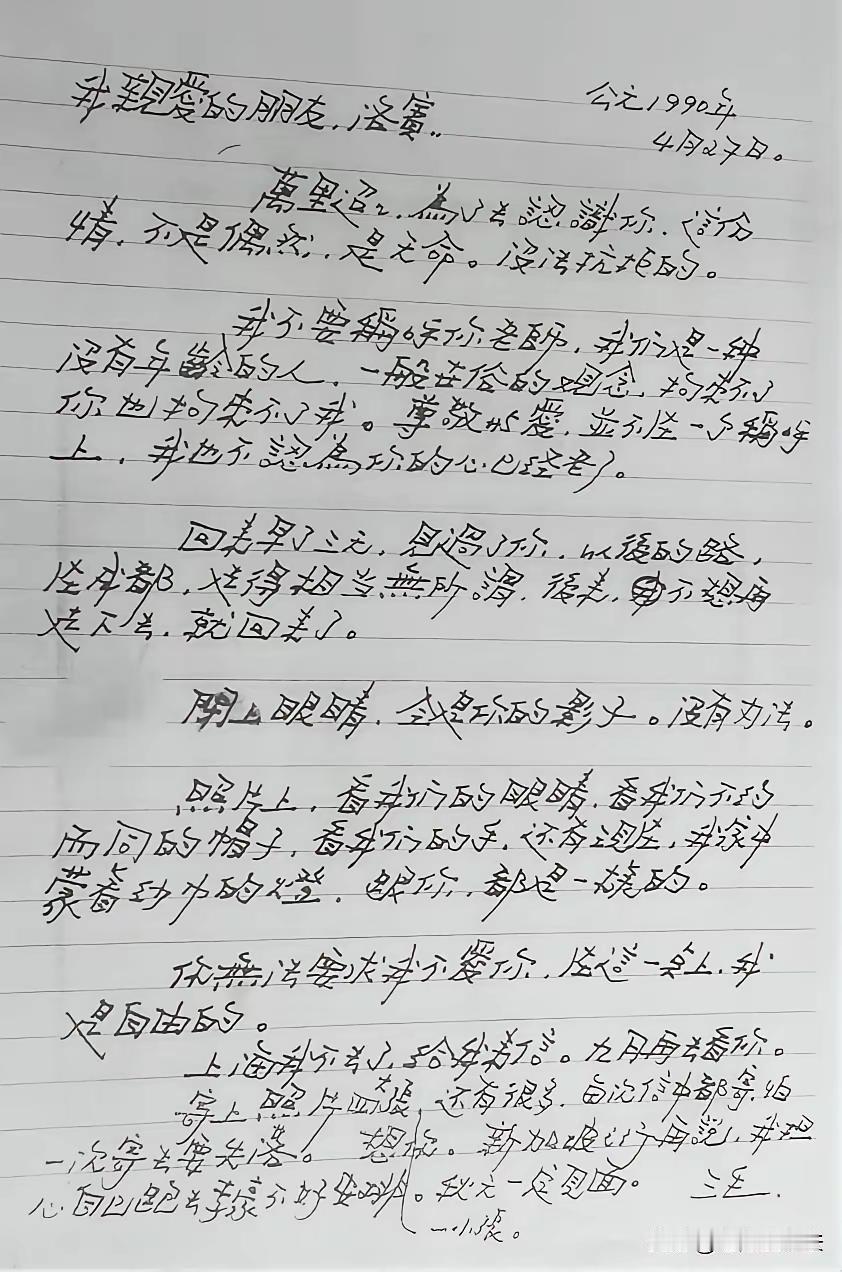 我親愛的朋友，洛賓：
公元1990年
4月27日。
萬里迢迢，為了去認識你，這份
情，不是偶然，是天命。沒法抗拒的。
我不要稱呼你老師，我们是一种
沒有年齡的人，一般世俗的观念，拘束不了
你也拘束不了我。尊敬与愛，並不在一个稱呼
上，我也不認為你的心已经老了。
回来早了三天，見過了你，以後的路，
在成都，走得相当無所謂，後来，不想再
走下去，就回来了。
閉上眼睛，全是你的影子。没有办法。
照片上，看我们的眼睛，看我们不约
而同的帽子，看我们的手，还有现在，我家中
蒙着纱巾的燈，跟你，都是一樣的。
你無法要求我不愛你，在這一点上，我
是自由的。
上海我不去了，给我来信。九月再去看你。
寄上照片四大張，还有很多，每次信中都寄，怕
一次寄去要失落。想你。新加坡之行再說，我担
心自己跑去李豪不好安排。秋天一定見面。 三毛.
一小張。